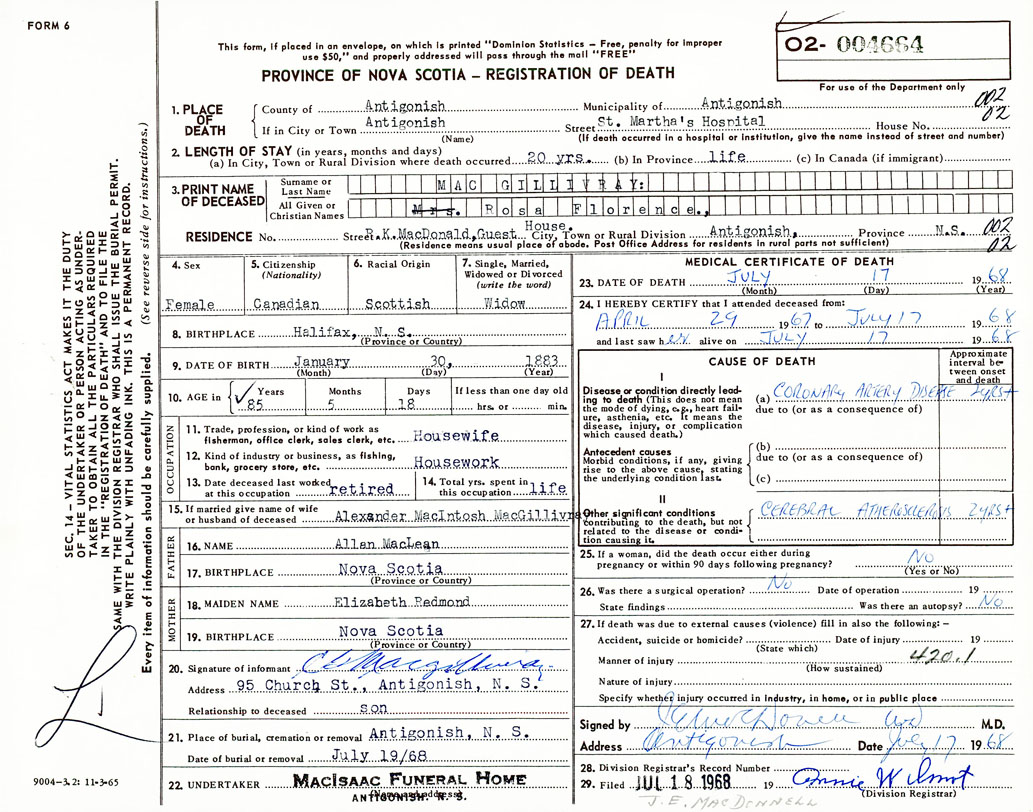 FORM 6
This form, if placed in an envelope, on which is printed "Dominion Statistics – Free, penalty for improper
use $50," and properly addressed will pass through the mail "FREE"
PROVINCE OF NOVA SCOTIA – REGISTRATION OF DEATH
O2- 004684
For use of the Department only
1. PLACE OF DEATH
County of Antigonish Municipality of Antigonish 002
If in City or Town Antigonish Street St. Martha's Hospital House No. 02
(Name) (If death occurred in a hospital or institution, give the name instead of street and number)
2. LENGTH OF STAY (in years, months and days)
(a) In City, Town or Rural Division where death occurred 20 yrs. (b) In Province life (c) In Canada (if immigrant)
3. PRINT NAME OF DECEASED
Surname or Last Name MAC GILLIVRAY:
All Given or Christian Names Mrs. Rosa Florence.,
RESIDENCE No. Street R.K.MacDonald,Guest House. City, Town or Rural Division Antigonish, Province N.S. 002
(Residence means usual place of abode. Post Office Address for residents in rural parts not sufficient) 02
4. Sex
Female
5. Citizenship (Nationality)
Canadian
6. Racial Origin
Scottish
7. Single, Married, Widowed or Divorced (write the word)
Widow
8. BIRTHPLACE Halifax, N. S.
(Province or Country)
9. DATE OF BIRTH January 30, 1883
(Month) (Day) (Year)
10. AGE in Years Months Days If less than one day old
85 5 18 hrs. or min.
OCCUPATION
11. Trade, profession, or kind of work as
fisherman, office clerk, sales clerk, etc. Housewife
12. Kind of industry or business, as fishing,
bank, grocery store, etc. Housework
13. Date deceased last worked
at this occupation retired
14. Total yrs. spent in
this occupation life
15. If married give name of wife
or husband of deceased Alexander MacIntosh MacGillivra
FATHER
16. NAME Allan MacLean
17. BIRTHPLACE Nova Scotia
(Province or Country)
MOTHER
18. MAIDEN NAME Elizabeth Redmond
19. BIRTHPLACE Nova Scotia
(Province or Country)
20. Signature of informant
Address 95 Church St., Antigonish, N. S.
Relationship to deceased son
21. Place of burial, cremation or removal Antigonish, N. S.
Date of burial or removal July 19/68
22. UNDERTAKER MacIsaac Funeral Home
ANTIGONISH, N. S.
MEDICAL CERTIFICATE OF DEATH
23. DATE OF DEATH JULY 17 1968
(Month) (Day) (Year)
24. I HEREBY CERTIFY that I attended deceased from:
APRIL 29 1967 to JULY 17 1968
and last saw her alive on JULY 17 1968
CAUSE OF DEATH
Approximate interval between onset and death
I
Disease or condition directly lead-
ing to death (This does not mean
the mode of dying, e.g., heart fail-
ure, asthenia, etc. It means the
disease, injury, or complication
which caused death.)
(a) CORONARY ARTERY DISEASE 2YRS+
due to (or as a consequence of)
Antecedent causes
Morbid conditions, if any, giving
rise to the above cause, stating
the underlying condition last.
(b)
due to (or as a consequence of)
(c)
II
Other significant conditions
contributing to the death, but not
related to the disease or condi-
tion causing it.
CEREBRAL ATHEROSCLEROSIS 2YRS+
25. If a woman, did the death occur either during
pregnancy or within 90 days following pregnancy? No
(Yes or No)
26. Was there a surgical operation? No Date of operation 19
State findings Was there an autopsy? No
27. If death was due to external causes (violence) fill in also the following: –
Accident, suicide or homicide? Date of injury 19
(State which)
Manner of injury 420.1
(How sustained)
Nature of injury
Specify whether injury occurred in industry, in home, or in public place
Signed by M.D.
Address Antigonish Date July 17 1968
28. Division Registrar's Record Number
29. Filed JUL 18 1968 19
(Division Registrar)
J. E. MACDONNELL
SEC. 14 – VITAL STATISTICS ACT MAKES IT THE DUTY
OF THE UNDERTAKER OR PERSON ACTING AS UNDER-
TAKER TO OBTAIN ALL THE PARTICULARS REQUIRED
IN THE "REGISTRATION OF DEATH" AND TO FILE THE
SAME WITH THE DIVISION REGISTRAR WHO SHALL ISSUE THE BURIAL PERMIT.
WRITE PLAINLY WITH UNFADING INK. THIS IS A PERMANENT RECORD.
Every item of information should be carefully supplied. (See reverse side for instructions.)
9004-3.2: 11-3-65